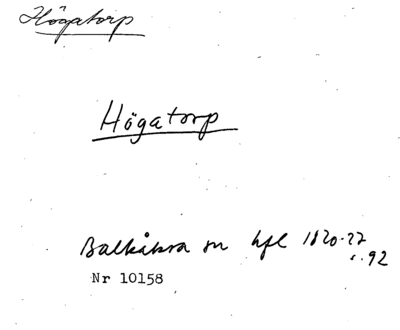 Högatorp
Högatorp
Balkåkra sn hfl 1820-27
s. 92
Nr 10158